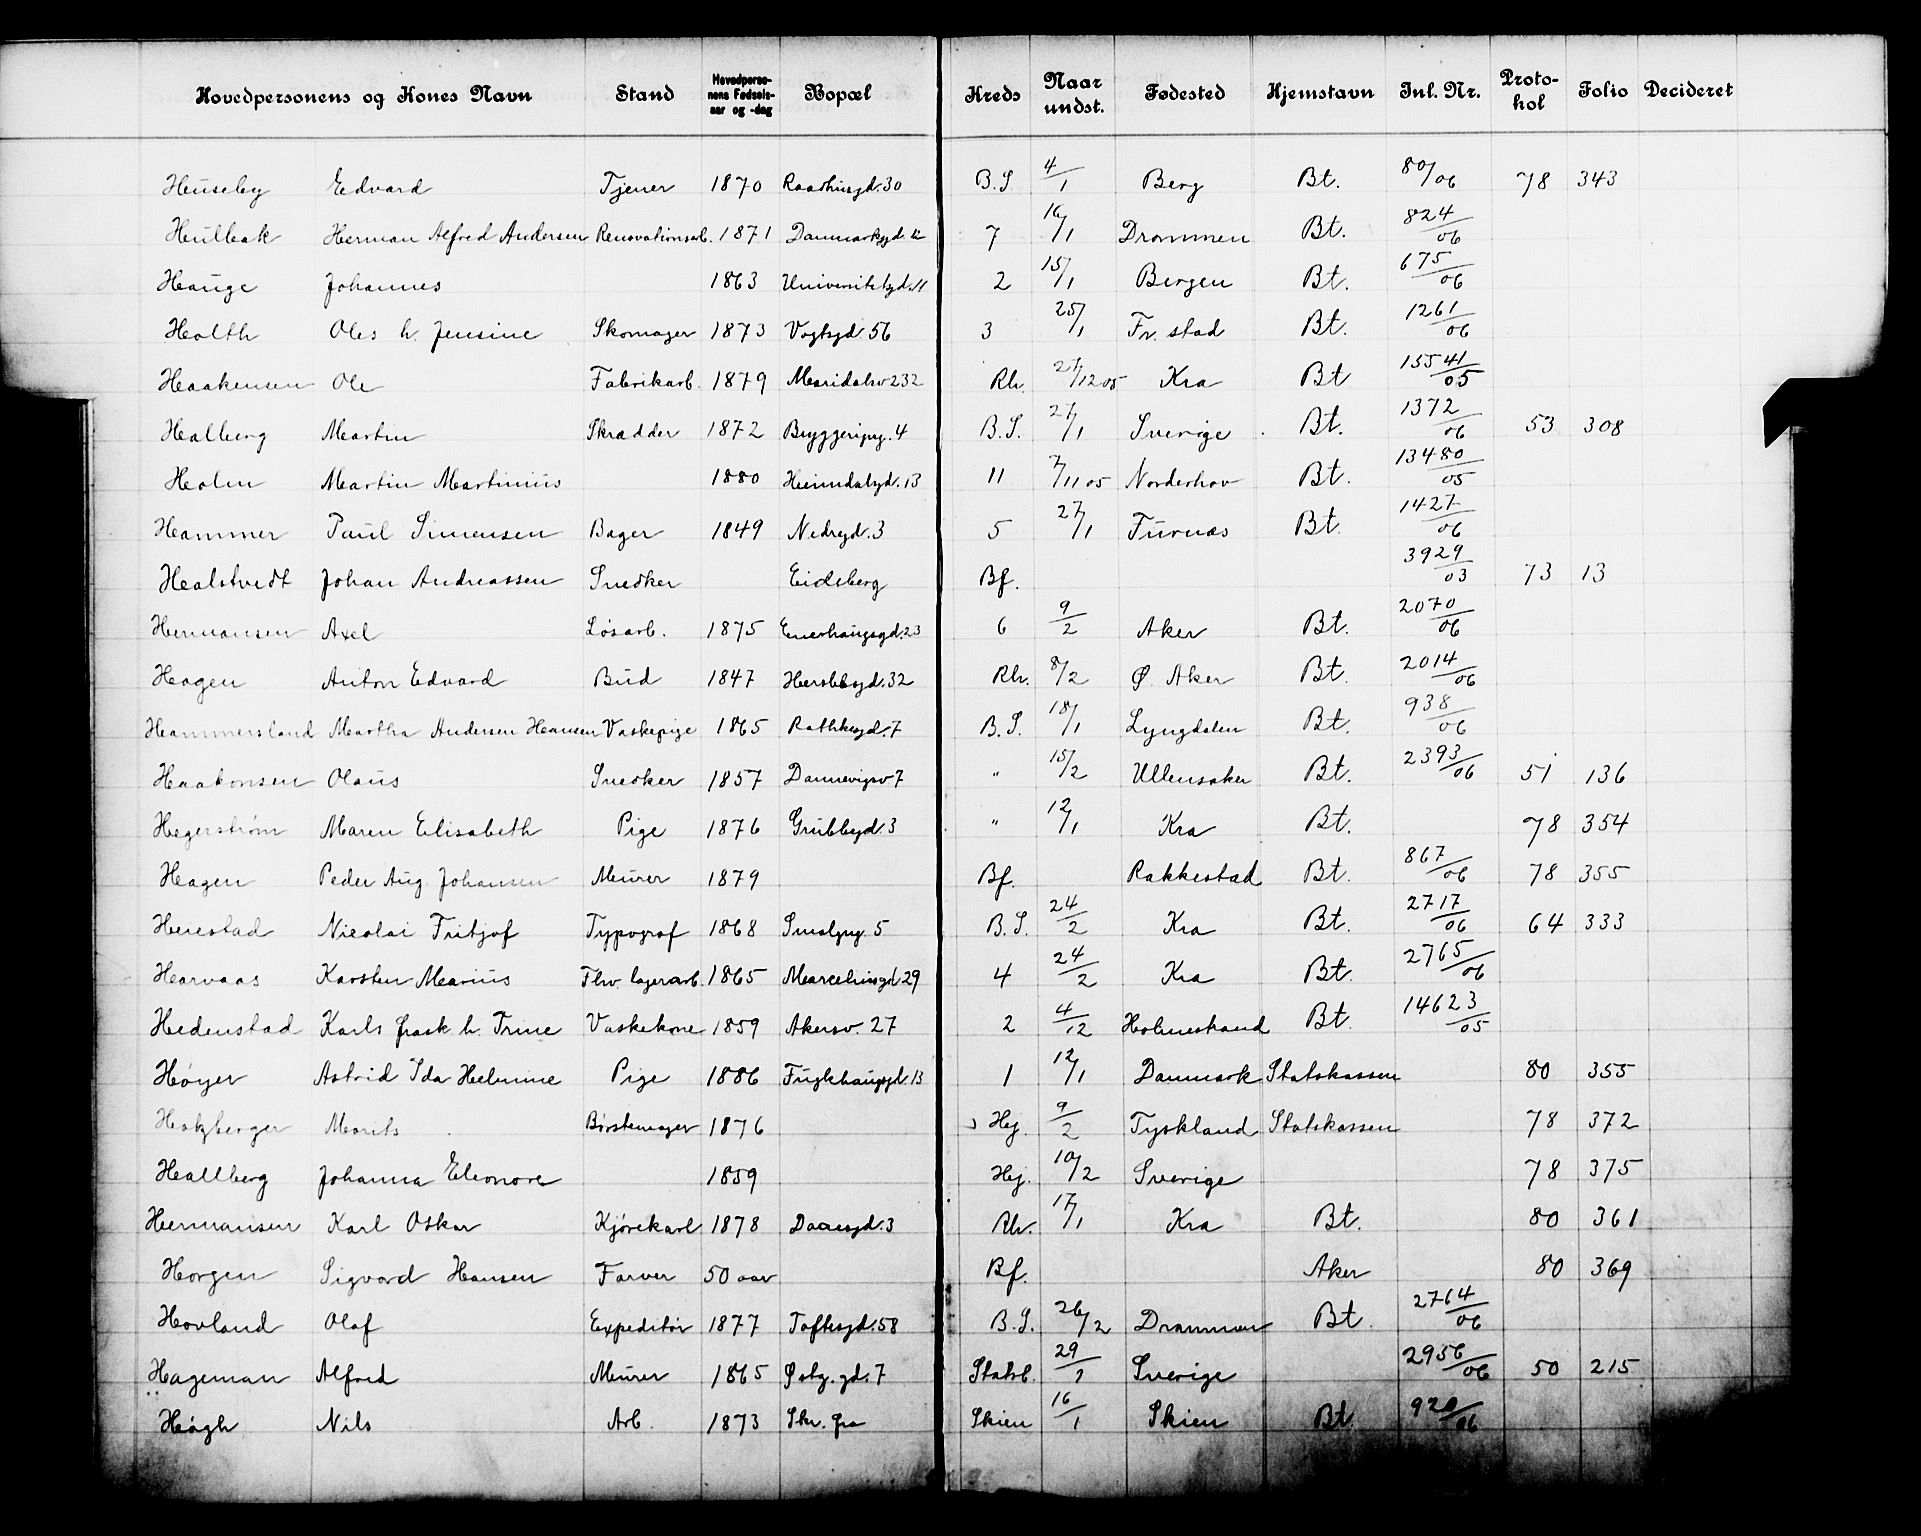 Hovedpersonens og Kones Navn Stand Hovedperso- nens Fødsels- aar og -dag Bopæl Kreds Naar undst. Fødested Hjemstavn Inl. Nr. Proto- kol Folio Decideret
Huseby Edvard Tjener 1870 Raadhusgd. 30 B.S. 4/1 Berg Bt. 80/06 78 343
Hulbak Herman Alfred Andersen Renovationsarb. 1871 Danmarksgd. 12 7 16/1 Drammen Bt. 824/06
Hauge Johannes 1863 Universitetsgd. 11 2 15/1 Bergen Bt. 675/06
Holth Oles h. Jensine Skomager 1873 Vogtsgd. 56 3 25/1 Fr. stad Bt. 1261/06
Haakensen Ole Fabrikarb. 1879 Maridalsv 232 Rh. 27/12 05 Kra Bt 15541/05
Halberg Martin Skrædder 1872 Bryggerigg. 4 B.S. 27/1 Sverige Bt. 1372/06 53 308
Holm Martin Martinius 1880 Heimdalsgd. 13 11 7/11 05 Norderhov Bt. 13480/05
Hammer Paul Simensen Bager 1849 Nedregd. 3 5 27/1 Furnæs Bt. 1427/06
Halstvedt Johan Andreassen Snedker Eidsberg Bf. 3929/03 73 13
Hermansen Axel Løsarb. 1875 Enerhaugsgd. 23 6 9/2 Aker Bt. 2070/06
Hagen Anton Edvard Bud 1847 Herslebsgd. 32 Rh. 8/2 Ø. Aker Bt. 2014/06
Hammersland Martha Andersen Hansen Vaskepige 1865 Rathkesgd. 7 B.S. 18/1 Lyngdalen Bt. 938/06
Haakonsen Olaus Snedker 1857 Dannevigsv 7 " 15/2 Ullensaker Bt. 2393/06 51 136
Hegerstrøm Maren Elisabeth Pige 1876 Grubbegd. 3 " 12/1 Kra Bt. 78 354
Hagen Peder Aug. Johansen Murer 1879 Bf. Rakkestad Bt. 867/06 78 355
Heiestad Nicolai Fritjof Typograf 1868 Smalgng. 5 B.S. 24/2 Kra Bt. 2717/06 64 333
Harvaas Karsten Marius Fhv. lagerarb. 1865 Marcelinsgd 29 4 24/2 Kra Bt. 2765/06
Hedenstad Karls frask. h. Trine Vaskekone 1859 Akersv. 27 2 4/12 Holmestrand Bt. 14623/05
Høyer Astrid Ida Helmine Pige 1886 Fuglehaugsgd. 13 1 12/1 Danmark Statskassen 80 355
Hatzberger Morits Børstemager 1876 Hej. 9/2 Tyskland Statskassen 78 372
Hallberg Johanna Eleonore 1859 Hej. 10/2 Sverige 78 375
Hermansen Karl Oskar Kjørekarl 1878 Daaesgd. 3 Rh. 17/1 Kra Bt. 80 361
Horgen Sigvard Hansen Farver 50 aar Bf. Aker 80 369
Hovland Olaf Expeditør 1877 Toftesgd. 58 B.S. 26/2 Drammen Bt. 2764/06
Hageman Alfred Murer 1865 Østg. gd. 7 Statsb. 29/1 Sverige 2956/06 50 215
Høgh Nils Arb. 1873 Skr. fra Skien 16/1 Skien Bt 920/06